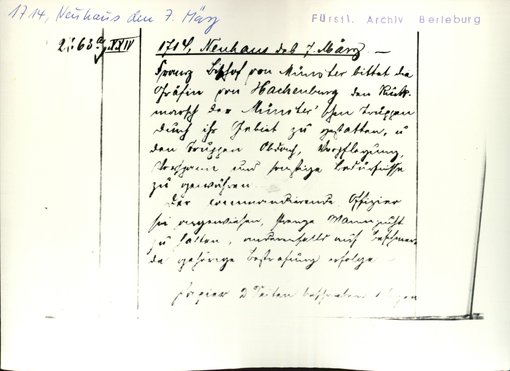 1714, Neuhaus den 7. März
Fürstl. Archiv Berleburg
1714, Neuhaus des 7. März —
Franz Bischof von Münster bittet die
Gräfin von Hachenburg den Rück-
marsch der Münster'schen Truppen
durch ihr Gebiet zu gestatten, u
den Truppen Obdach, Verpflegung,
Vorspann und sonstige Bedürfnisse
zu gewähren.
Der commandierende Offizier
sei angewiesen, strenge Mannszucht
zu halten, andernfalls auf
de gehörige Bestrafung erfolge
Papier 2 Seiten